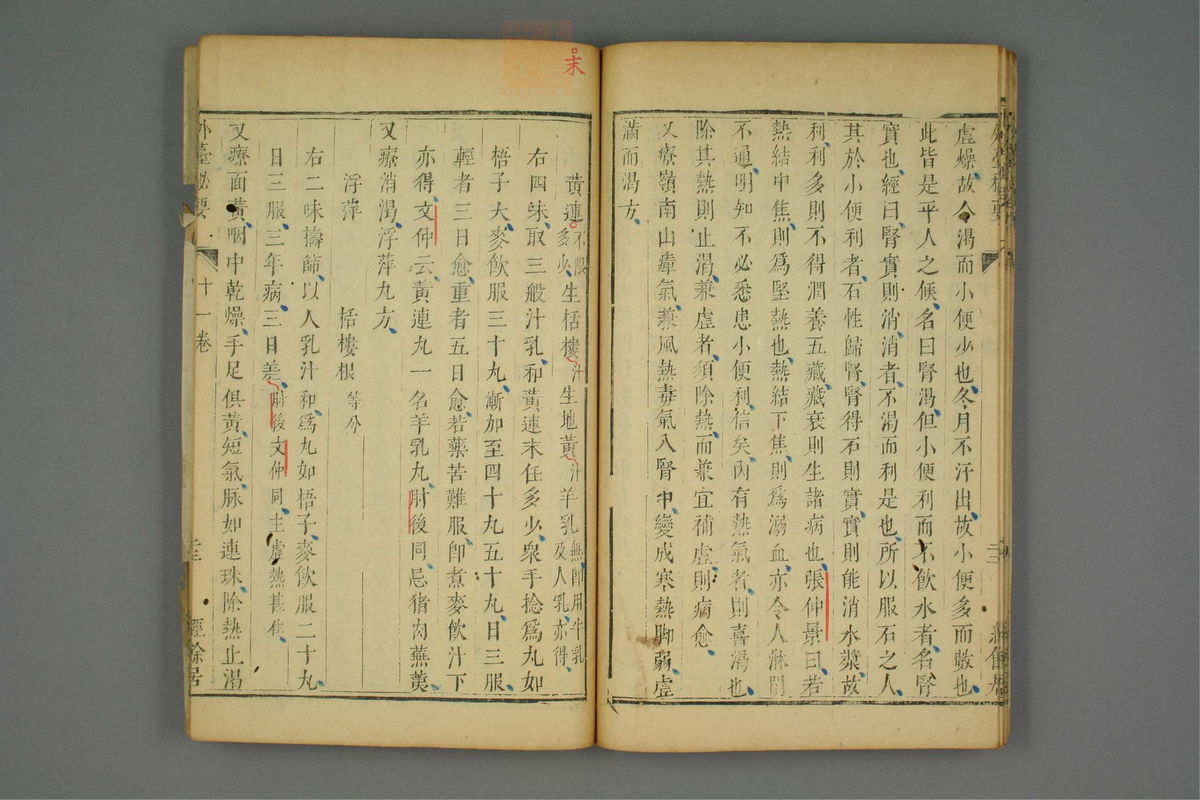 虛燥故令渴而小便少也冬月不汗出故小便多而數也
此皆是平人之候名曰腎渴但小便利而不飲水者名腎
實也經曰腎實則消消者不渴而利是也所以服石之人
其於小便利者石性歸腎腎得石則實實則能消水漿故
利利多則不得潤養五藏藏衰則生諸病也張仲景曰若
熱結中焦則為堅熱也熱結下焦則為溺血亦令人淋閉
不通明知不必悉患小便利信矣內有熱氣者則喜渴也
除其熱則止渴兼虛者須除熱而兼宜補虛則病愈
又療嶺南山瘴氣兼風熱毒氣入腎中變成寒熱脚弱虛
滿而渴方
末
黃連不限多少生栝樓汁生地黃汁羊乳無即用牛乳及人乳亦得
右四味取三般汁乳和黃連末任多少衆手捻為丸如
梧子大麥飲服三十丸漸加至四十丸五十丸日三服
輕者三日愈重者五日愈若藥苦難服即煮麥飲汁下
亦得文仲云黃連丸一名羊乳丸肘後同忌猪肉蕪荑
又療消渴浮萍丸方
浮萍 栝樓根等分
右二味擣篩以人乳汁和為丸如梧子麥飲服二十丸
日三服三年病三日差肘後文仲同主虛熱甚佳
又療面黃咽中乾燥手足俱黃短氣脉如連珠除熱止渴
外臺秘要 十一卷 經餘居